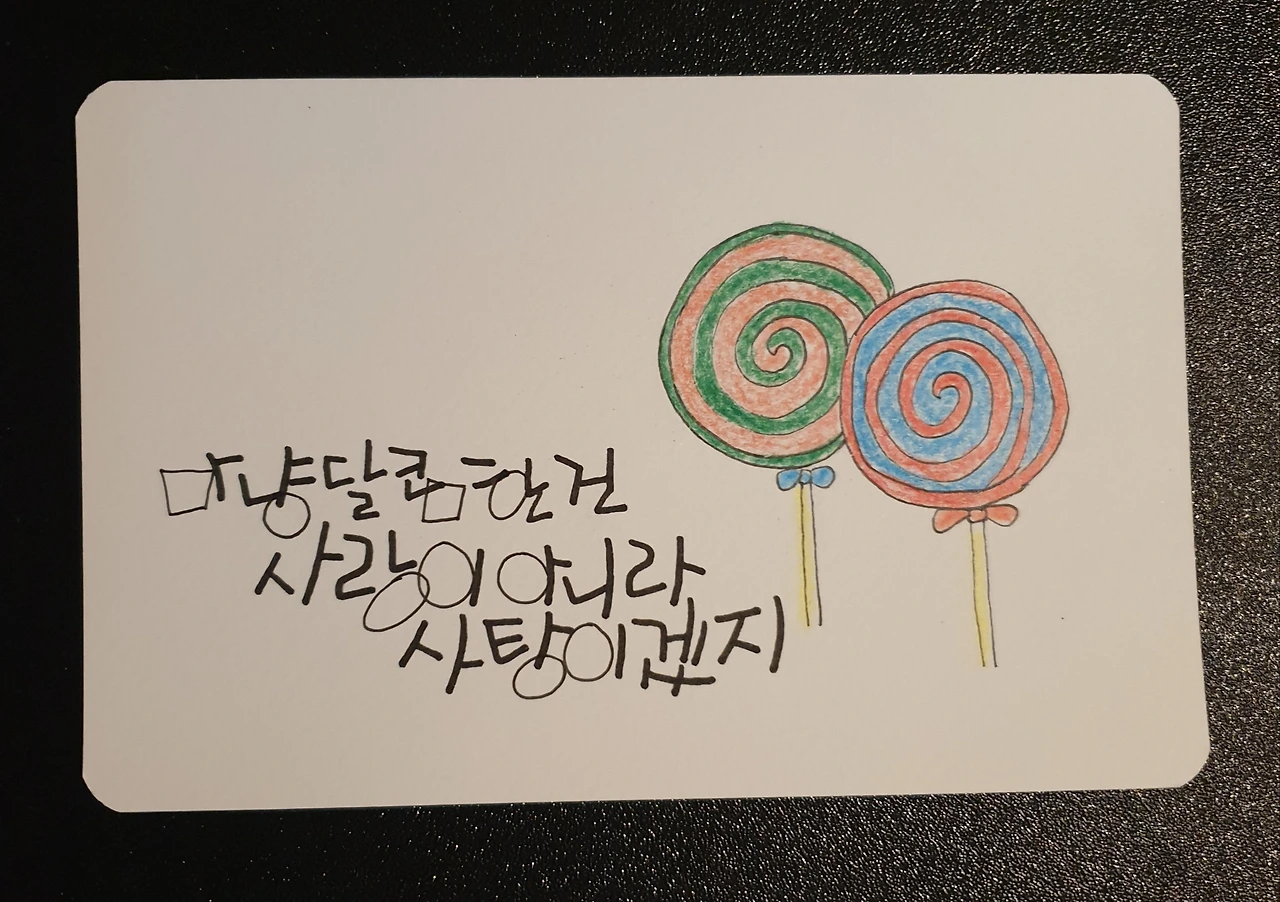 마냥 달콤한 건
사랑이 아니라
사탕이겠지